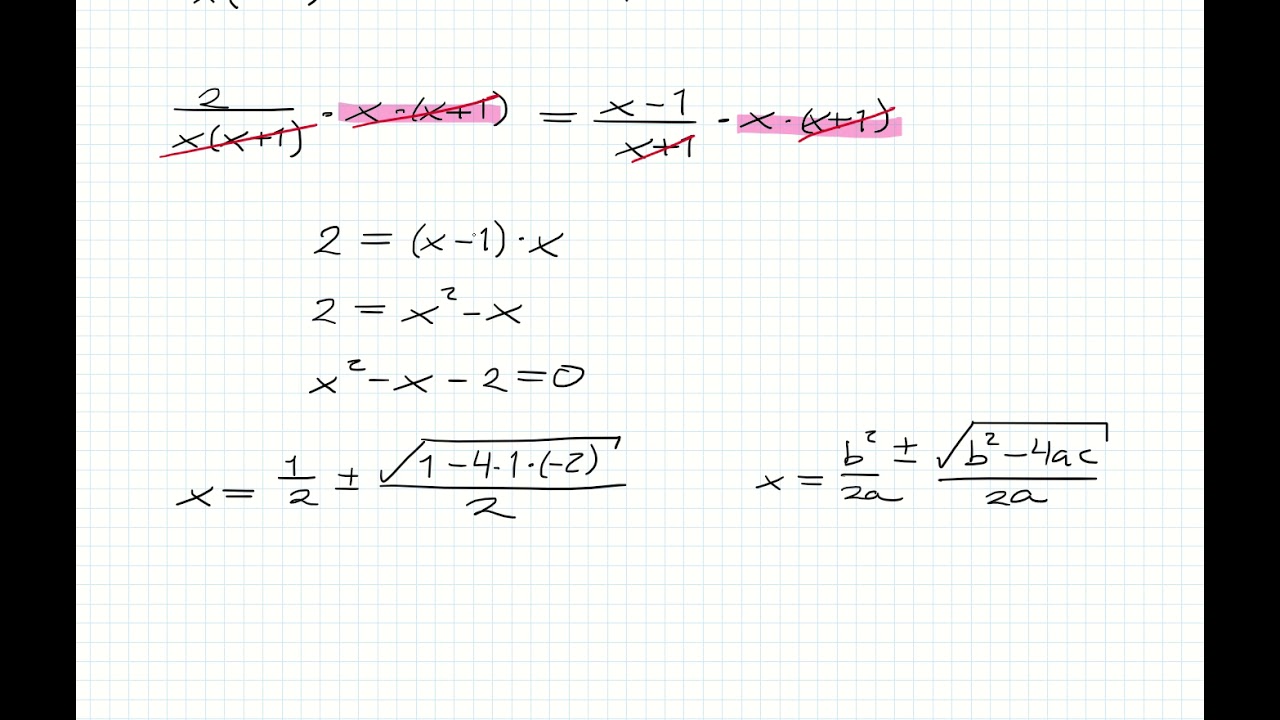 2/(x(x+1)) · x·(x+1) = (x-1)/(x+1) · x·(x+1)
2 = (x-1)·x
2 = x² - x
x² - x - 2 = 0
x = 1/2 ± √(1-4·1·(-2))/2
x = b²/2a ± √(b²-4ac)/2a